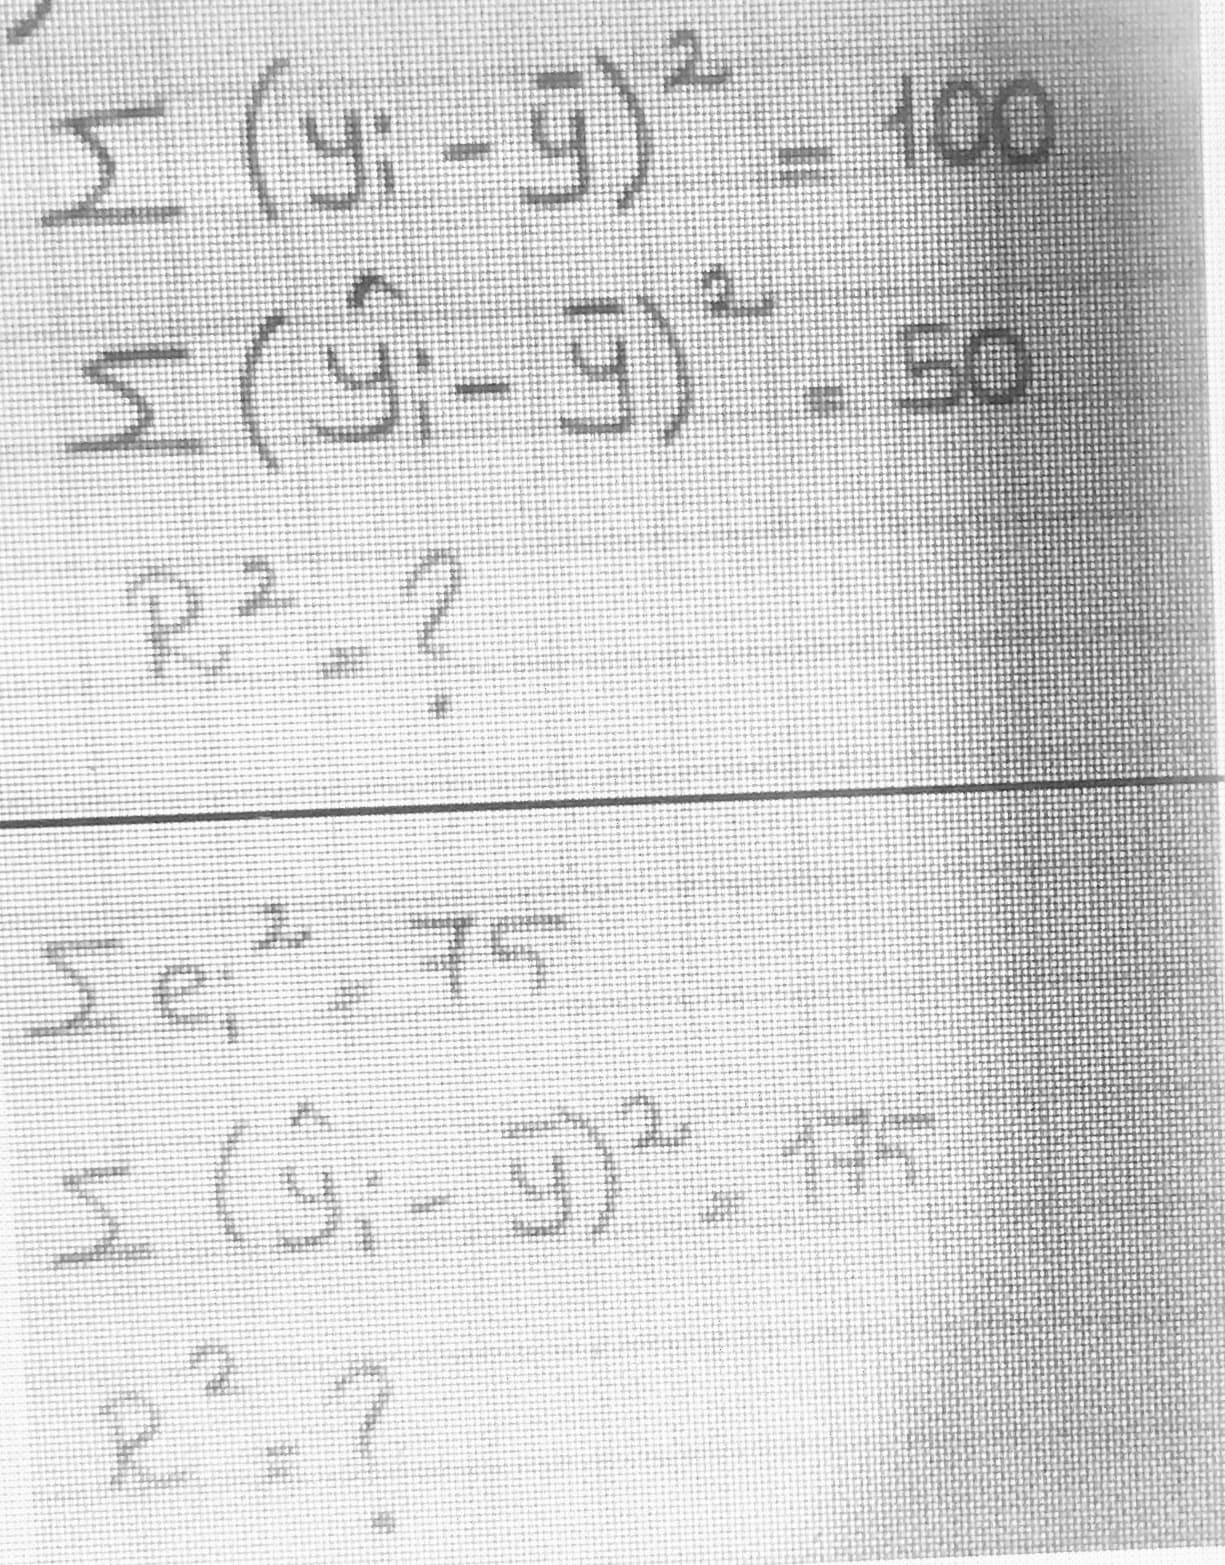 ∑ (yᵢ - ȳ)² = 100
∑ (ŷᵢ - ȳ)² = 50
R² = ?
∑ eᵢ² = 75
∑ (ŷᵢ - ȳ)² = 175
R² = ?